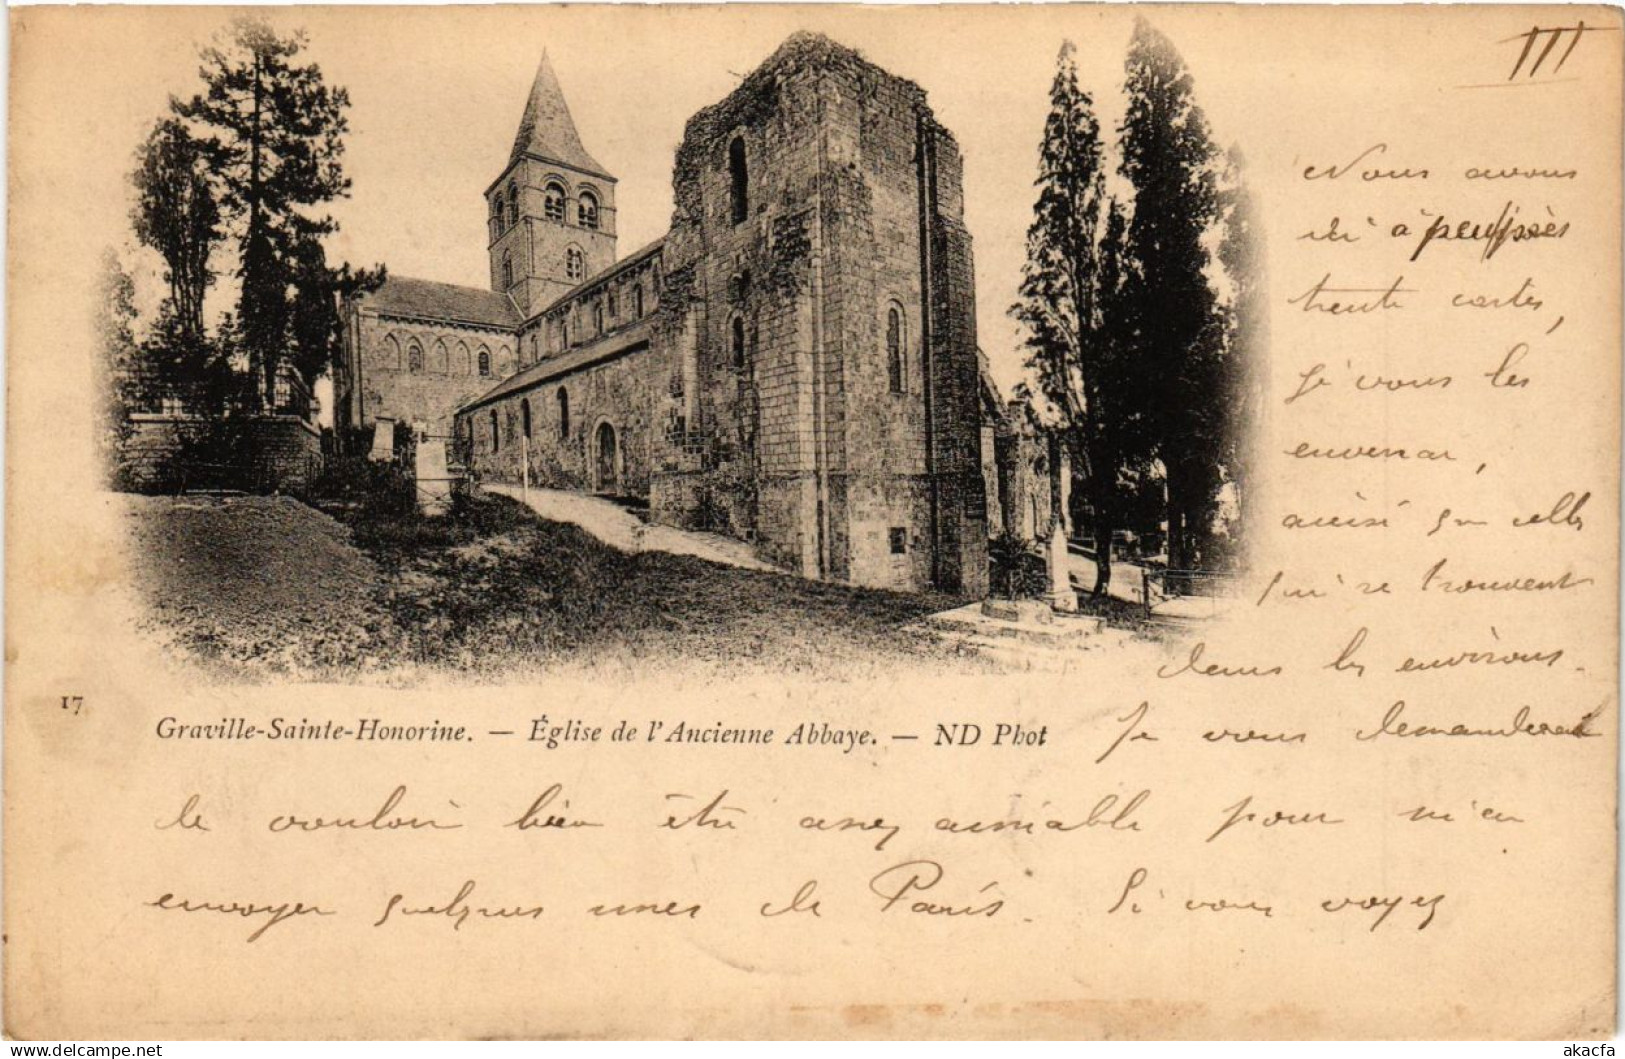 III
Nous avons
ici à peu près
trente cartes,
je vous les
enverrai,
ainsi que celles
qui se trouvent
dans les environs.
17
Graville-Sainte-Honorine. — Église de l'Ancienne Abbaye. — ND Phot
Je vous demanderai
de vouloir bien être assez aimable pour m'en
envoyer quelques unes de Paris. Si vous voyez
delcampe.net
akacfa